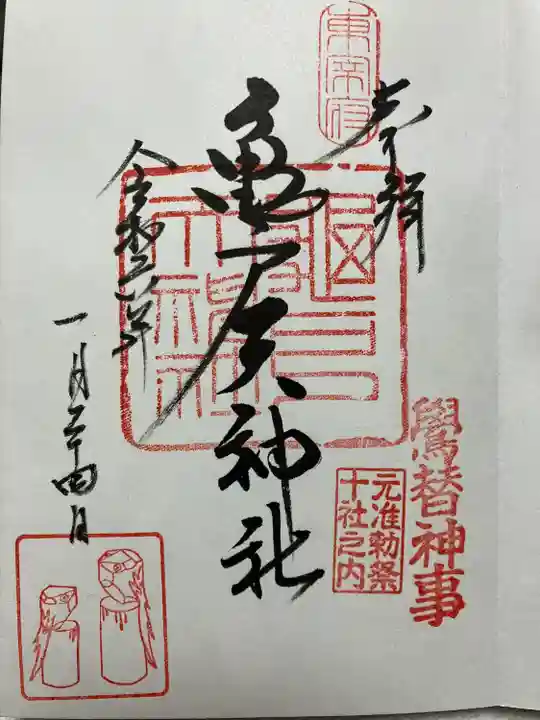 東宰府
奉拝
鷽替神事
元准勅祭
十社之内
亀戸天神社
令和二年
一月二十四日